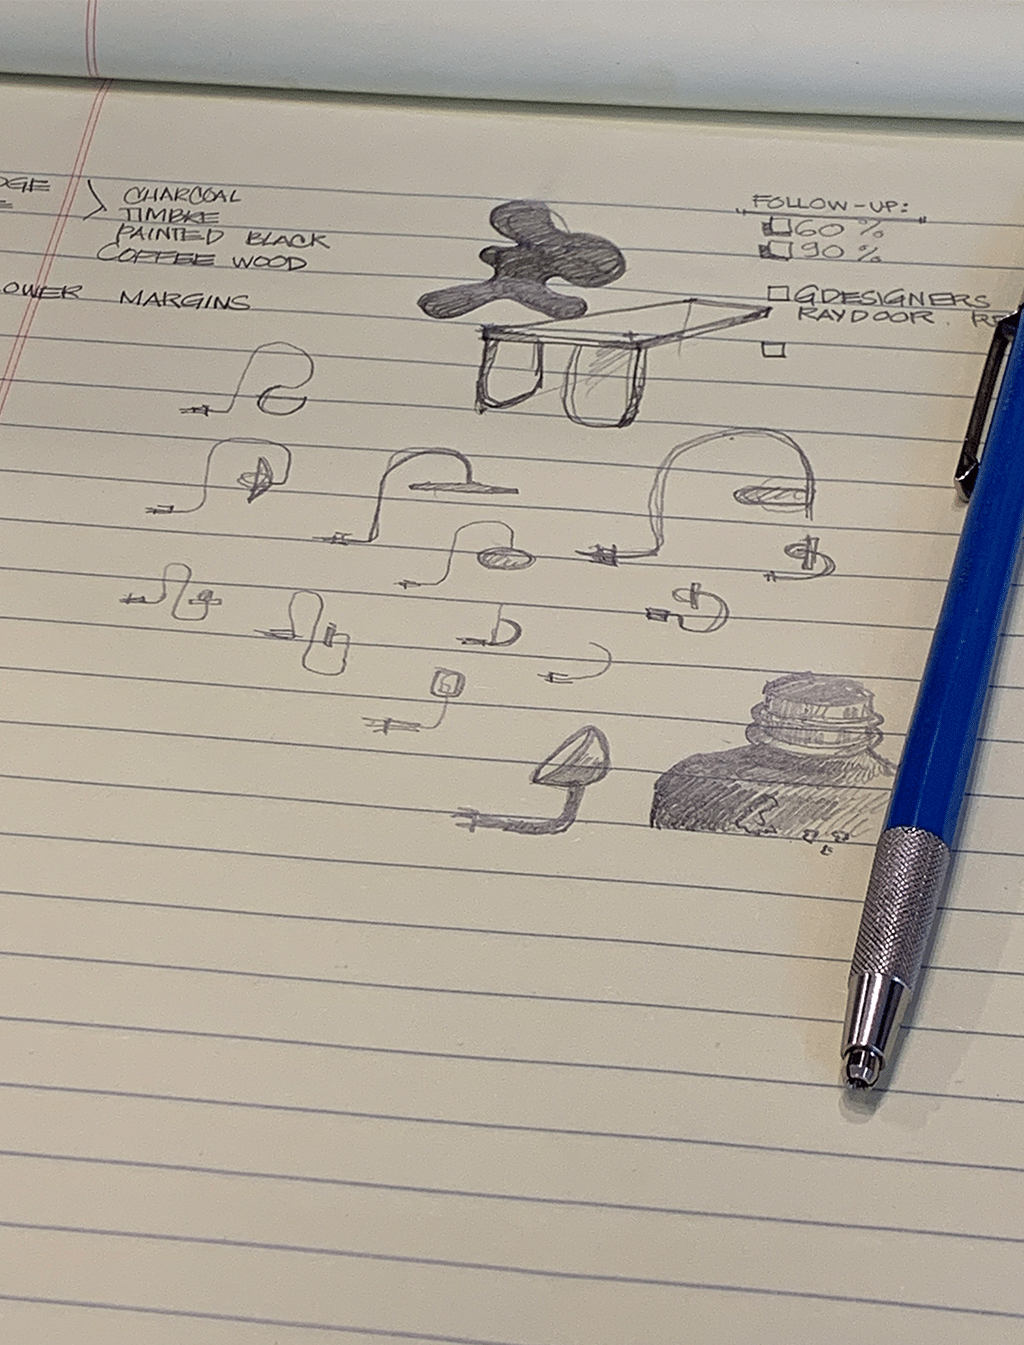 CHARCOAL
TIMBRE
PAINTED BLACK
COFFEE WOOD
OWER MARGINS
FOLLOW-UP:
60 %
90 %
GDESIGNERS
RAYDOOR